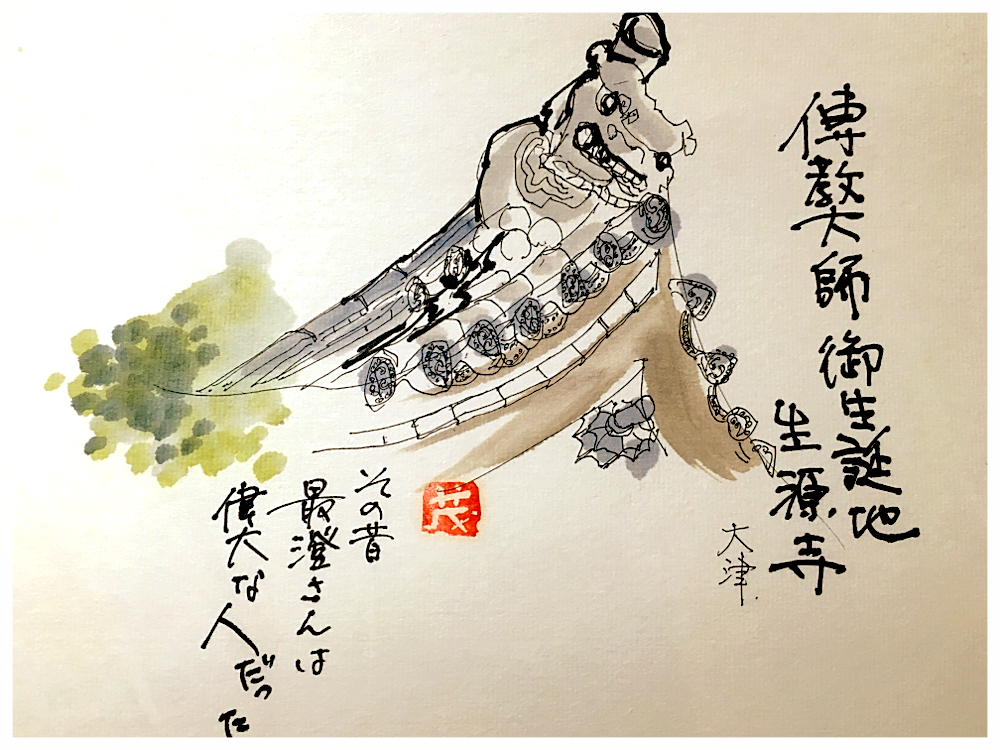 傳教大師 御生誕地
生源寺
大津.
その昔
最澄さんは
偉大な人だった
茂